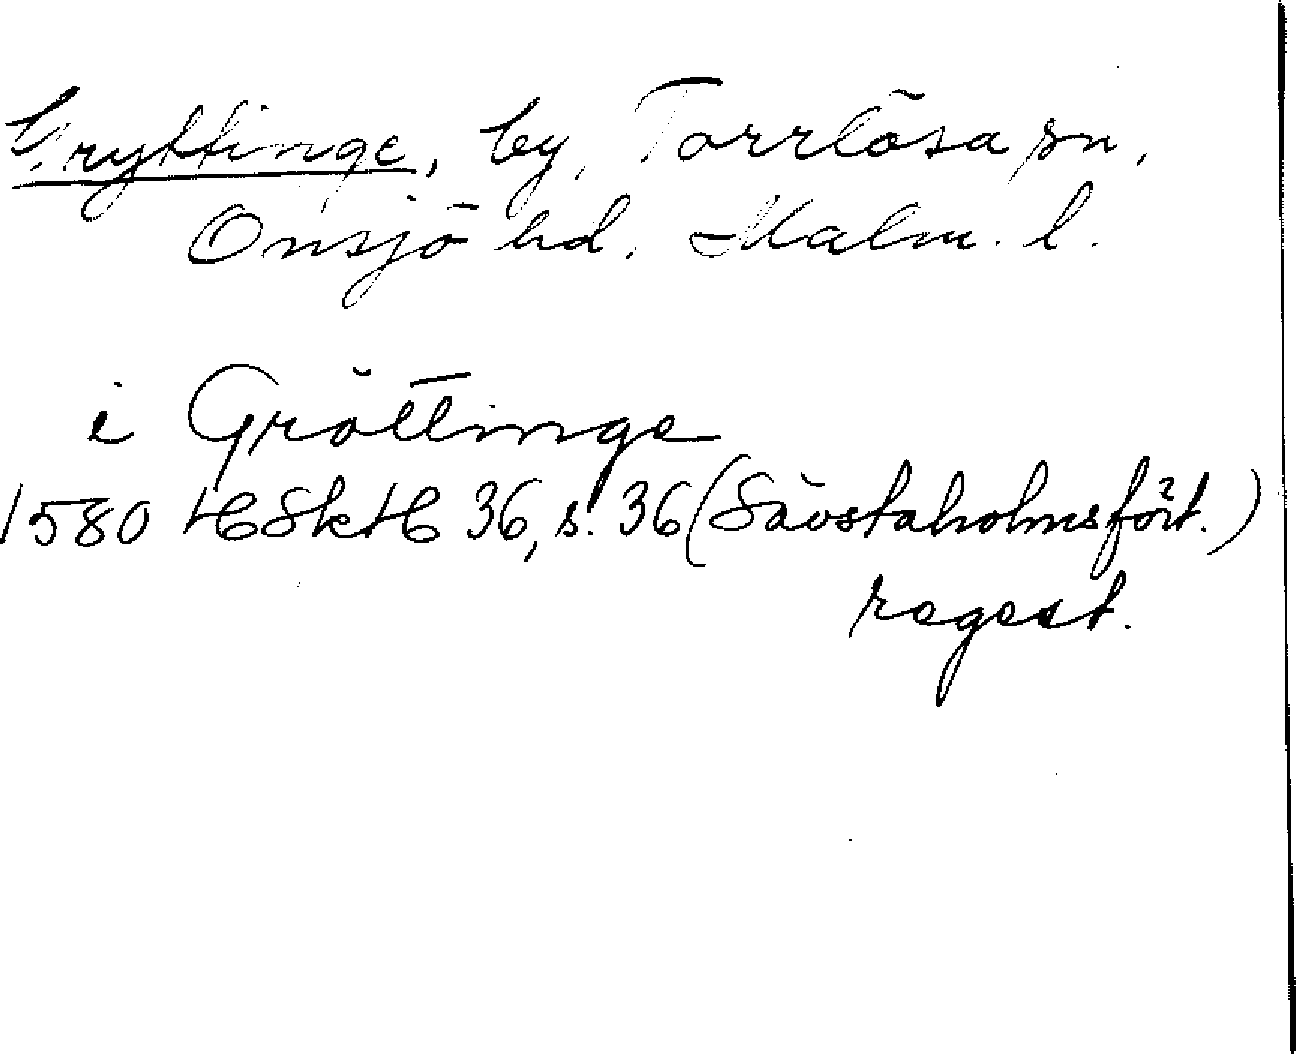 Gryttinge, by, Torrlösa sn,
Onsjö hd, Malm. l.
i Gröttinge
1580 HSkH 36, s. 36 (Sävstaholmsfört.)
regest.